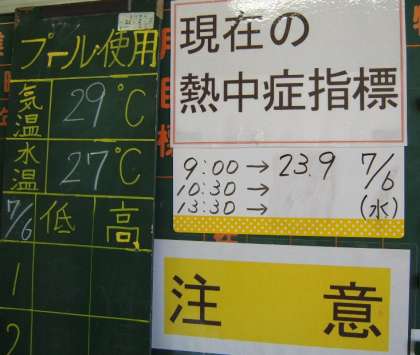 プール使用
気温 29℃
水温 27℃
7/6 低 高
1
2
現在の
熱中症指標
9:00→23.9 7/6
10:30→
13:30→ (水)
注 意